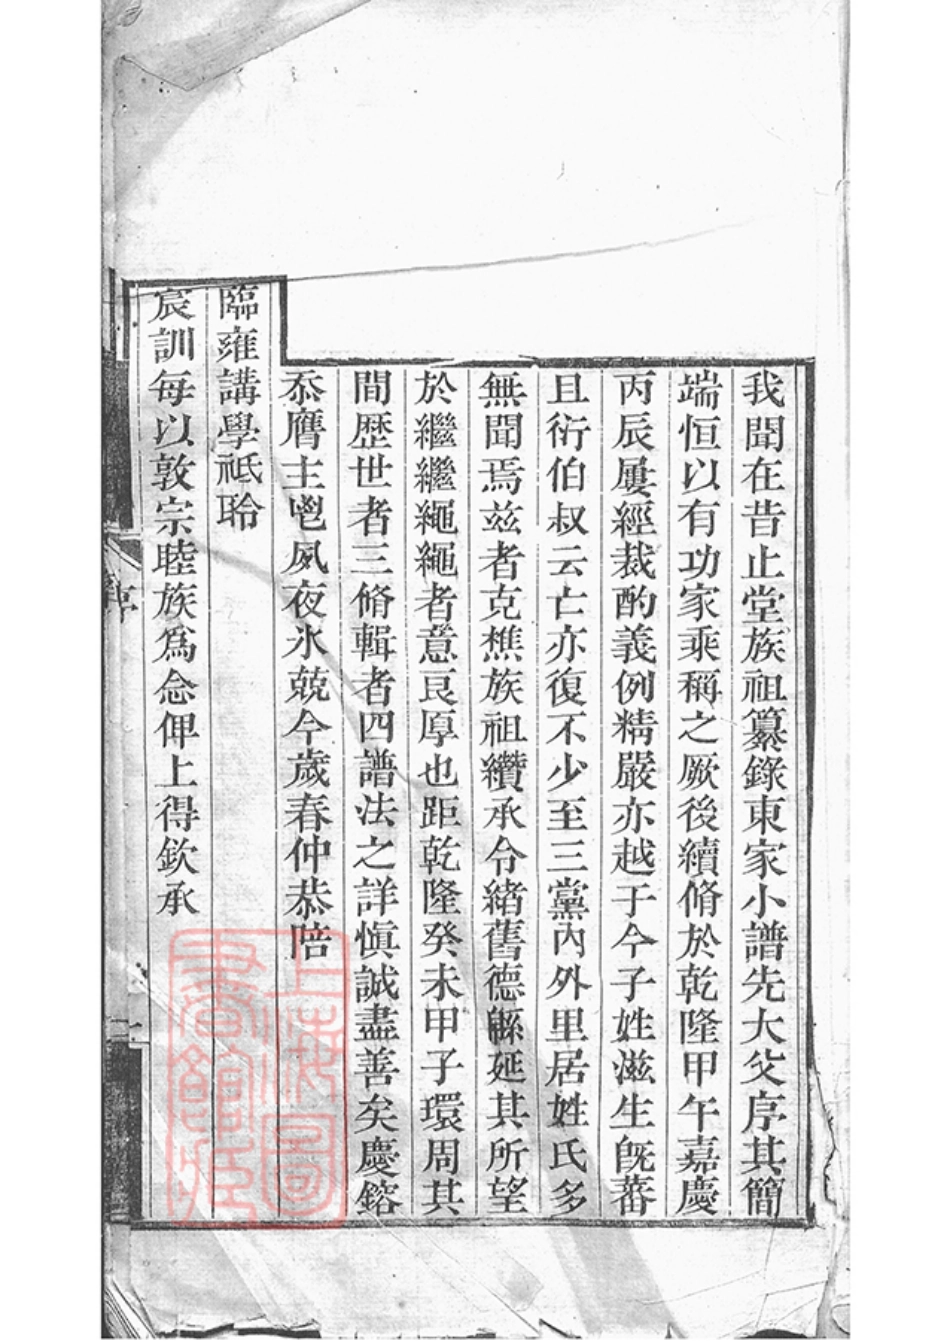 我聞在昔止堂族祖纂錄東家小譜先大父序其簡
端恒以有功家乘稱之厥後續脩於乾隆甲午嘉慶
丙辰屢經裁酌義例精嚴亦越于今子姓滋生旣蕃
且衍伯叔云亡亦復不少至三黨內外里居姓氏多
無聞焉茲者克樵族祖纘承令緒舊德緜延其所望
於繼繼繩繩者意良厚也距乾隆癸未甲子環周其
間歴世者三脩輯者四譜法之詳愼誠盡善矣慶鎔
忝膺主鬯夙夜氷兢今歲春仲恭陪
臨雍講學祗聆
宸訓每以敦宗睦族爲念俾上得欽承
上海圖
書館藏